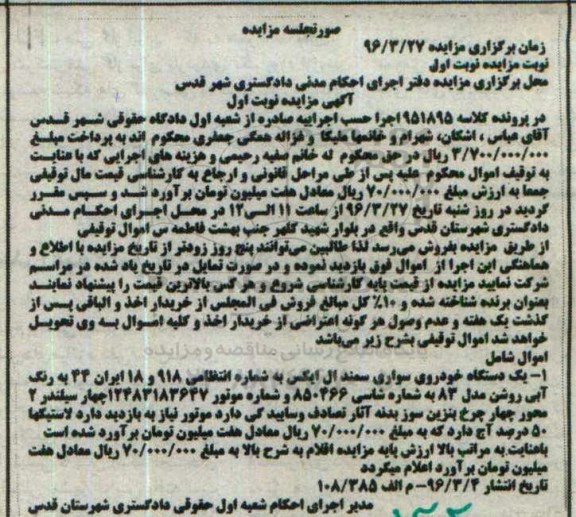 صورتجلسه مزایده
زمان برگزاری مزایده ۹۶/۳/۲۷
نوبت مزایده نوبت اول
محل برگزاری مزایده دفتر اجرای احکام مدنی دادگستری شهر قدس
آگهی مزایده نوبت اول
در پرونده کلاسه ۹۵۱۸۹۵ اجرا حسب اجراییه صادره از شعبه اول دادگاه حقوقی شهر قدس
آقای عباس ، اشکان، شهرام و خانمها ملیکا و غزاله همگی جعفری محکوم اند به پرداخت مبلغ
۳/۷۰۰/۰۰۰/۰۰۰ ریال در حق محکوم له خانم صفیه رحیمی و هزینه های اجرایی که با عنایت
به توقیف اموال محکوم علیه پس از طی مراحل قانونی و ارجاع به کارشناسی قیمت مال توقیفی
جمعا به ارزش مبلغ ۷۰/۰۰۰/۰۰۰ ریال معادل هفت میلیون تومان برآورد شد و سپس مقرر
گردید در روز شنبه تاریخ ۹۶/۳/۲۷ از ساعت ۱۱ الی ۱۲ در محل اجرای احکام مدنی
دادگستری شهرستان قدس واقع در بلوار شهید کلهر جنب بهشت فاطمه س اموال توقیفی
از طریق مزایده بفروش می‌رسد لذا طالبین می‌توانند پنج روز زودتر از تاریخ مزایده با اطلاع و
هماهنگی این اجرا از اموال فوق بازدید نموده و در صورت تمایل در تاریخ یاد شده در مراسم
شرکت نمایید مزایده از قیمت پایه کارشناسی شروع و هر کس بالاترین قیمت را پیشنهاد نمایند
بعنوان برنده شناخته شده و ۱۰٪ کل مبالغ فروش فی المجلس از خریدار اخذ و الباقی پس از
گذشت یک هفته و عدم وصول هر گونه اعتراضی از خریدار اخذ و کلیه اموال به وی تحویل
خواهد شد اموال توقیفی بشرح زیر می‌باشد
اموال شامل
۱- یک دستگاه خودروی سواری سمند ال ایکس به شماره انتظامی ۹۱۸ و ۱۸ ایران ۴۴ به رنگ
آبی روشن مدل ۸۳ به شماره شاسی ۸۵۰۴۶۶ و شماره موتور ۱۲۴۸۳۱۸۳۶۴۷ چهار سیلندر ۲
محور چهار چرخ بنزین سوز بدنه آثار تصادف وساییدگی دارد موتور نیاز به بازدید دارد لاستیکها
۵۰ درصد آج دارد که به مبلغ ۷۰/۰۰۰/۰۰۰ ریال معادل هفت میلیون تومان برآورد شده است
باعنایت به مراتب بالا ارزش پایه مزایده اقلام به شرح بالا به مبلغ ۷۰/۰۰۰/۰۰۰ ریال معادل هفت
میلیون تومان برآورد اعلام میگردد
تاریخ انتشار ۹۶/۳/۴ - م الف ۱۰۸/۳۸۵
مدیر اجرای احکام شعبه اول حقوقی دادگستری شهرستان قدس